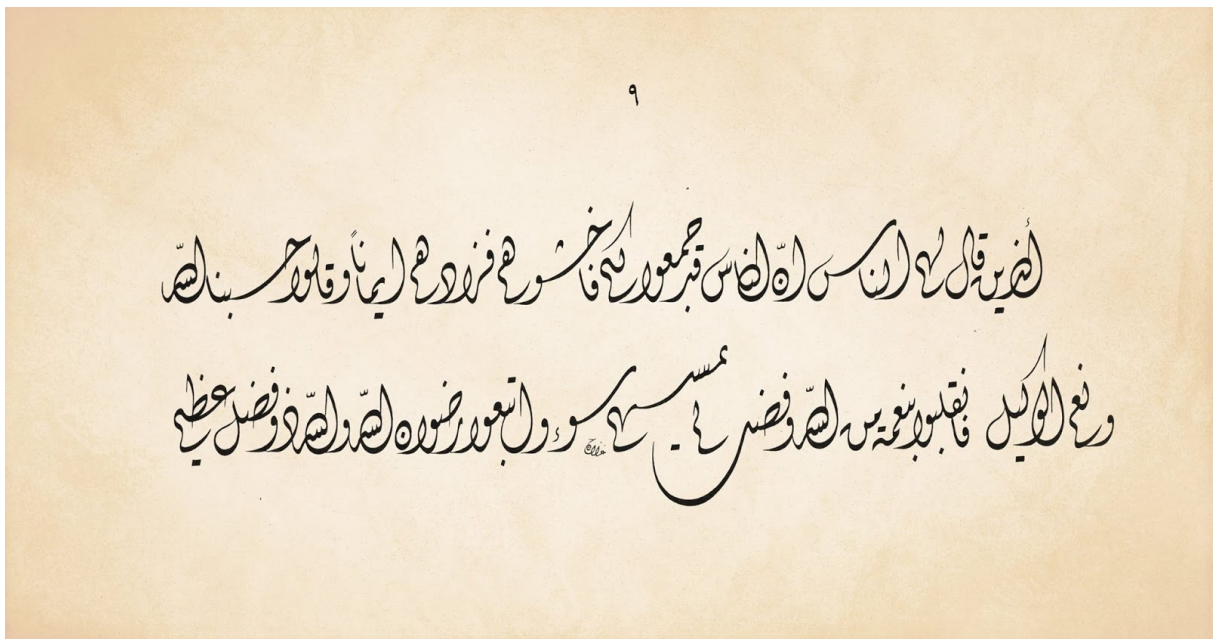 ٩
الذين قال لهم الناس انّ الناس قد جمعوا لكم فاخشوهم فزادهم ايماناً وقالوا حسبنا اللّه
ونعم الوكيل فانقلبوا بنعمة من اللّه وفضل لم يمسسهم سوء واتبعوا رضوان اللّه واللّه ذو فضل عظيم